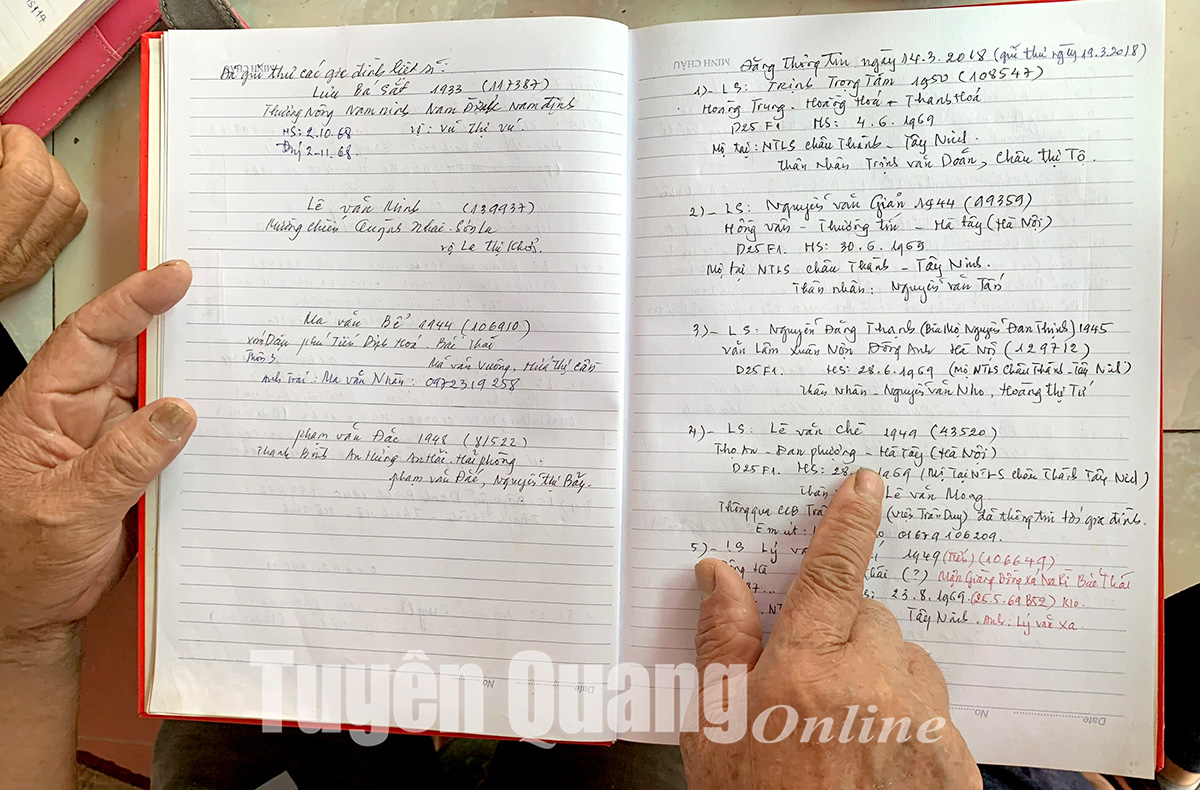 MINH CHÂU
Đã gửi thư các gia đình liệt sĩ:
Lưu Bá Sắt 1933 (117387)
Thường Nông Nam ninh Nam Định Nam định
HS: 2.10.68 vợ: vũ thị vú
2-11.68.
Lê văn Minh (139937)
Mường chiến Quỳnh Nhai - Sơn La
vợ La thị
Ma văn Bể 1944 (106910)
xóm Dâu phú Tiến Định Hoá. Bắc Thái
Thôn 3. Ma văn Vuông, Hứa thị cần
Anh trai: Ma văn Nhân: 0972319258
phạm văn Đắc 1948 (81522)
Thanh Bình An Hưng An Hải. Hải phòng
phạm văn Đắc, Nguyễn thị Bẩy.
Date No
MINH CHÂU
Đăng thông tin ngày 14.3.2018 (gửi thư ngày 19.3.2018)
1)- LS: Trịnh Trọng Tấm 1950 (108547)
Hoằng Trung. Hoằng Hoá + Thanh Hoá
D25 F1 HS: 4.6.1969
Mộ tại: NTLS châu Thành - Tây Ninh
Thân nhân Trịnh văn Doắn, Châu thị Tô.
2)- LS: Nguyễn văn Giản 1944 (19359)
Hồng vân - Thường tín - Hà tây (Hà Nội)
D25 F1. HS: 30.6.1969
Mộ tại NTLS châu Thành - Tây Ninh.
Thân nhân: Nguyễn văn Tấn
3)- LS: Nguyễn Đăng Thanh (Bia Mộ Nguyễn Đan Thịnh) 1945
vân Lâm Xuân Nộn Đông Anh Hà Nội (129712)
D25F1. HS: 28.6.1969 (Mộ NTLS Châu Thành - Tây Ninh)
Thân Nhân - Nguyễn văn Nho, Hoàng thị Tứ
4)- LS: Lê văn chè 1949 (43520)
Thọ An - Đan phượng - Hà Tây (Hà Nội)
D25F1. HS: 28. 1969 (Mộ Tại NTLS châu Thành Tây Ninh)
Thân Lê văn Mong
Thông qua CCB Trần (Việt Trần Duy) đã thông tin tới gia đình.
Em út: 01679106209.
5)- LS Lý 1949 (Tiến) (106649)
Hà (?) Bắc Thái
23.8.1969. (25.5.69 B52) K10.
Tây Ninh. Anh: Lý văn Xa
Date No
Tuyên Quang Online